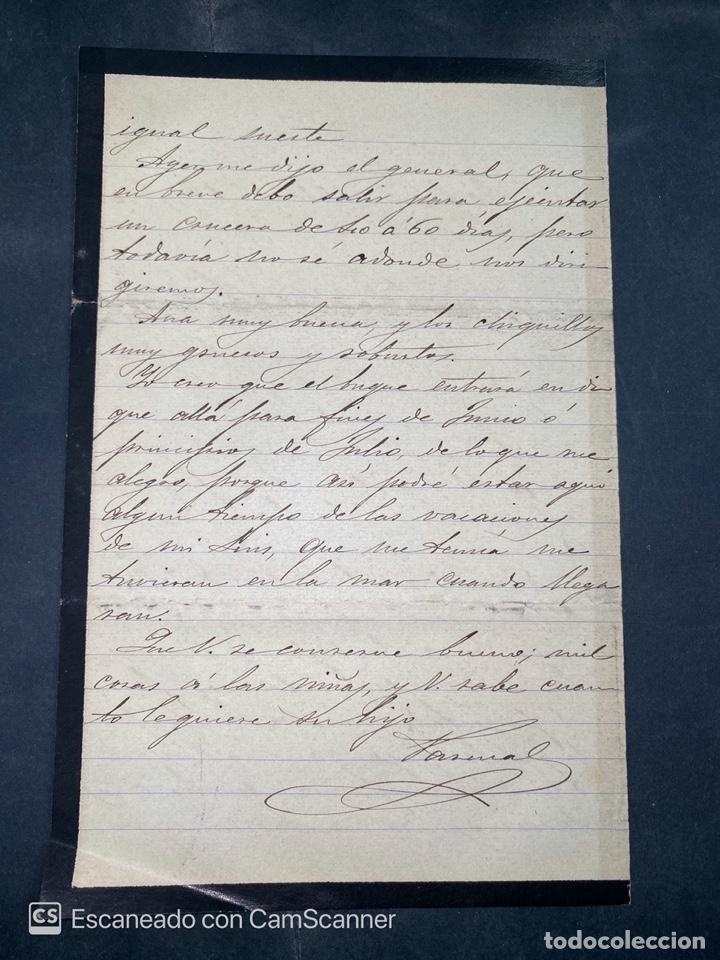 igual suerte
Ayer me dijo el general, que
en breve debo salir para ejecutar
un crucero de 50 á 60 días, pero
todavía no sé adonde nos diri
giremos.
Ana muy buena, y los chiquillos
muy gruesos y robustos.
Yo creo que el buque entrará en di
que allá para fines de Junio ó
principios de Julio, de lo que me
alegro, porque así podré estar aquí
algun tiempo de las vacaciones
de mi Luis, que me temia, me
tuvieran en la mar cuando llega
ran.
Que V. se conserve bueno; mil
cosas á las niñas, y V. sabe cuan
to le quiere su hijo
Pascual
CS Escaneado con CamScanner
todocoleccion